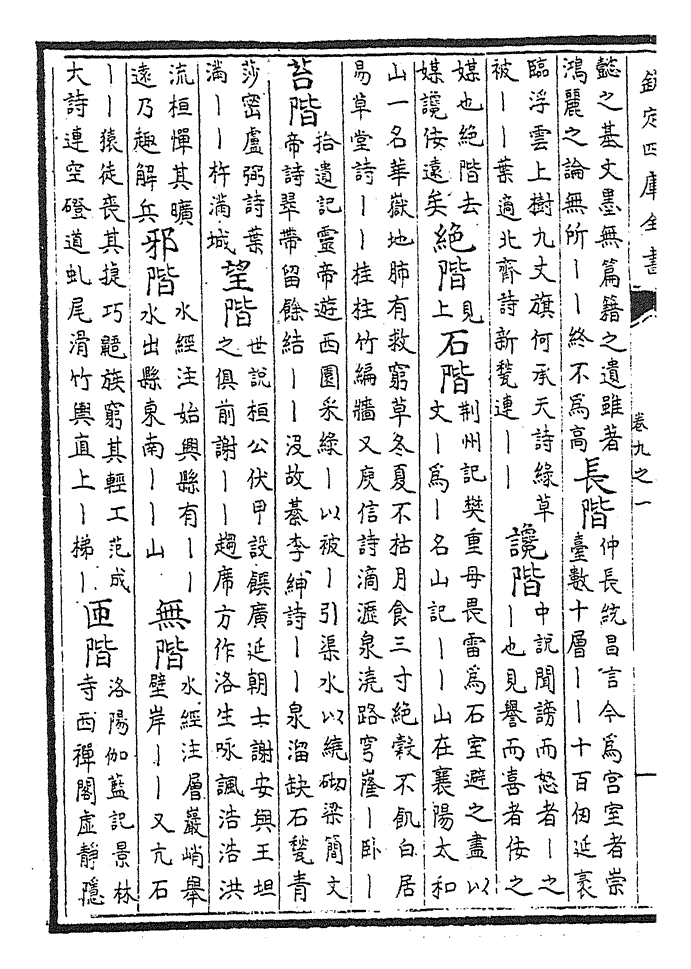 欽定四庫全書
卷九之一
一
懿之基文墨無篇籍之遺雖著
鴻麗之論無所丨丨終不為高
長階
仲長統昌言今為宫室者崇
臺數十層丨丨十百仞延袤
臨浮雲上樹九丈旗何承天詩綠草
被丨丨葉適北齋詩新甃連丨丨
讒階
中說聞謗而怒者丨之
丨也見譽而喜者佞之
媒也絶階去
媒讒佞遠矣
絶階
見
上
石階
荆州記樊重母畏雷為石室避之盡以
文丨為丨名山記丨丨山在襄陽太和
山一名華嶽地肺有救窮草冬夏不枯月食三寸絶穀不飢白居
易草堂詩丨丨桂柱竹編牆又庾信詩滴瀝泉澆路穹窿丨卧丨
苔階
拾遺記靈帝遊西園采綠丨以被丨引渠水以繞砌梁簡文
帝詩翠帶留餘結丨丨没故綦李紳詩丨丨泉溜缺石甃青
莎密盧弼詩葉
滿丨丨杵滿城
望階
世說桓公伏甲設饌廣延朝士謝安與王坦
之俱前謝丨丨趨席方作洛生咏諷浩浩洪
流桓憚其曠
遠乃趣解兵
邪階
水經注始興縣有丨丨
水出縣東南丨丨山
無階
水經注層巖峭舉
壁岸丨丨又亢石
丨丨猿徒喪其捷巧鼯族窮其輕工范成
大詩連空磴道虬尾滑竹輿直上丨梯丨
匝階
洛陽伽藍記景林
寺西禪閣虛靜隱